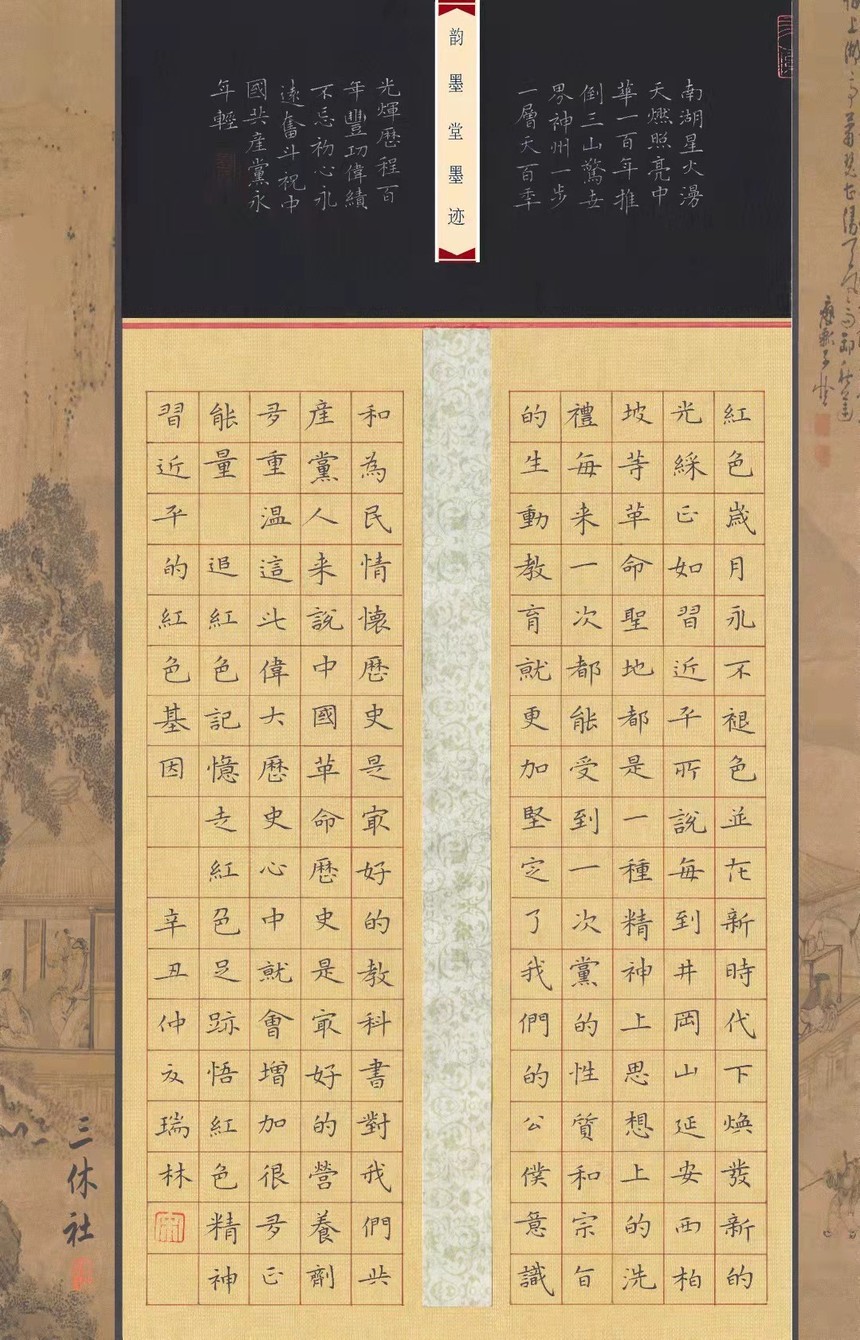 韵墨堂墨迹
南湖星火漫
天燃照亮中
華一百年推
倒三山驚世
界神州一步
一層天百季
光輝歷程百
年豐功偉績
不忘初心永
遠奮斗祝中
國共產黨永
年輕
紅色歲月永不褪色並在新時代下煥發新的
光綵正如習近平所說每到井岡山延安西柏
坡等革命聖地都是一種精神上思想上的洗
禮每来一次都能受到一次黨的性質和宗旨
的生動教育就更加堅定了我們的公僕意識
和為民情懷歷史是最好的教科書對我們共
產黨人来說中國革命歷史是最好的營養劑
多重温這些偉大歷史心中就會增加很多正
能量 追紅色記憶 走紅色足跡悟紅色精神
習近平的紅色基因 辛丑仲夏瑞林
三休社